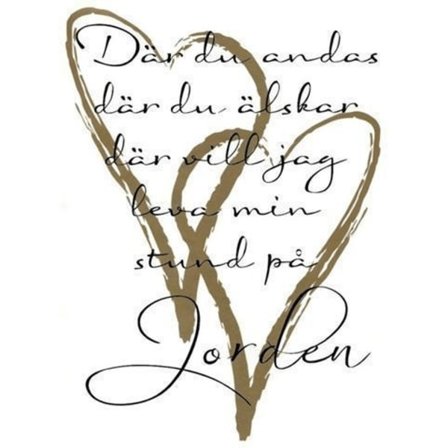 Där du andas
där du älskar
där vill jag
leva min
stund på
Jorden